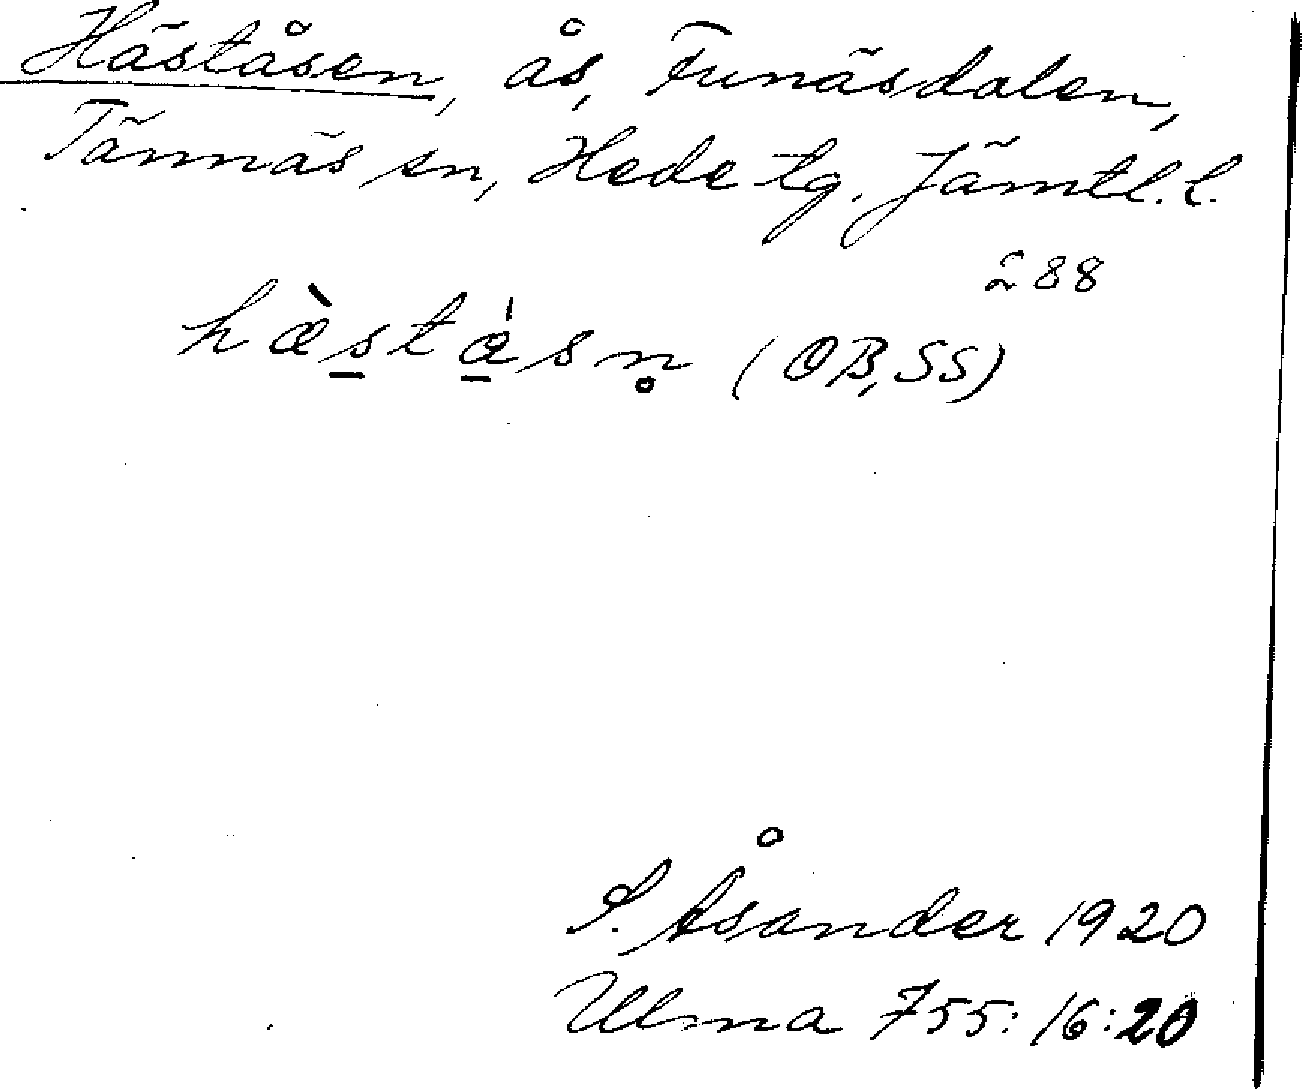 Håståsen, ås, Funäsdalen,
Tännäs sn, Hede tg. Jämtl. l.
288
hæ̀s̱tǽ̱sn̥ (OB, SS)
S. Åsander 1920
Ulma 755: 16:20